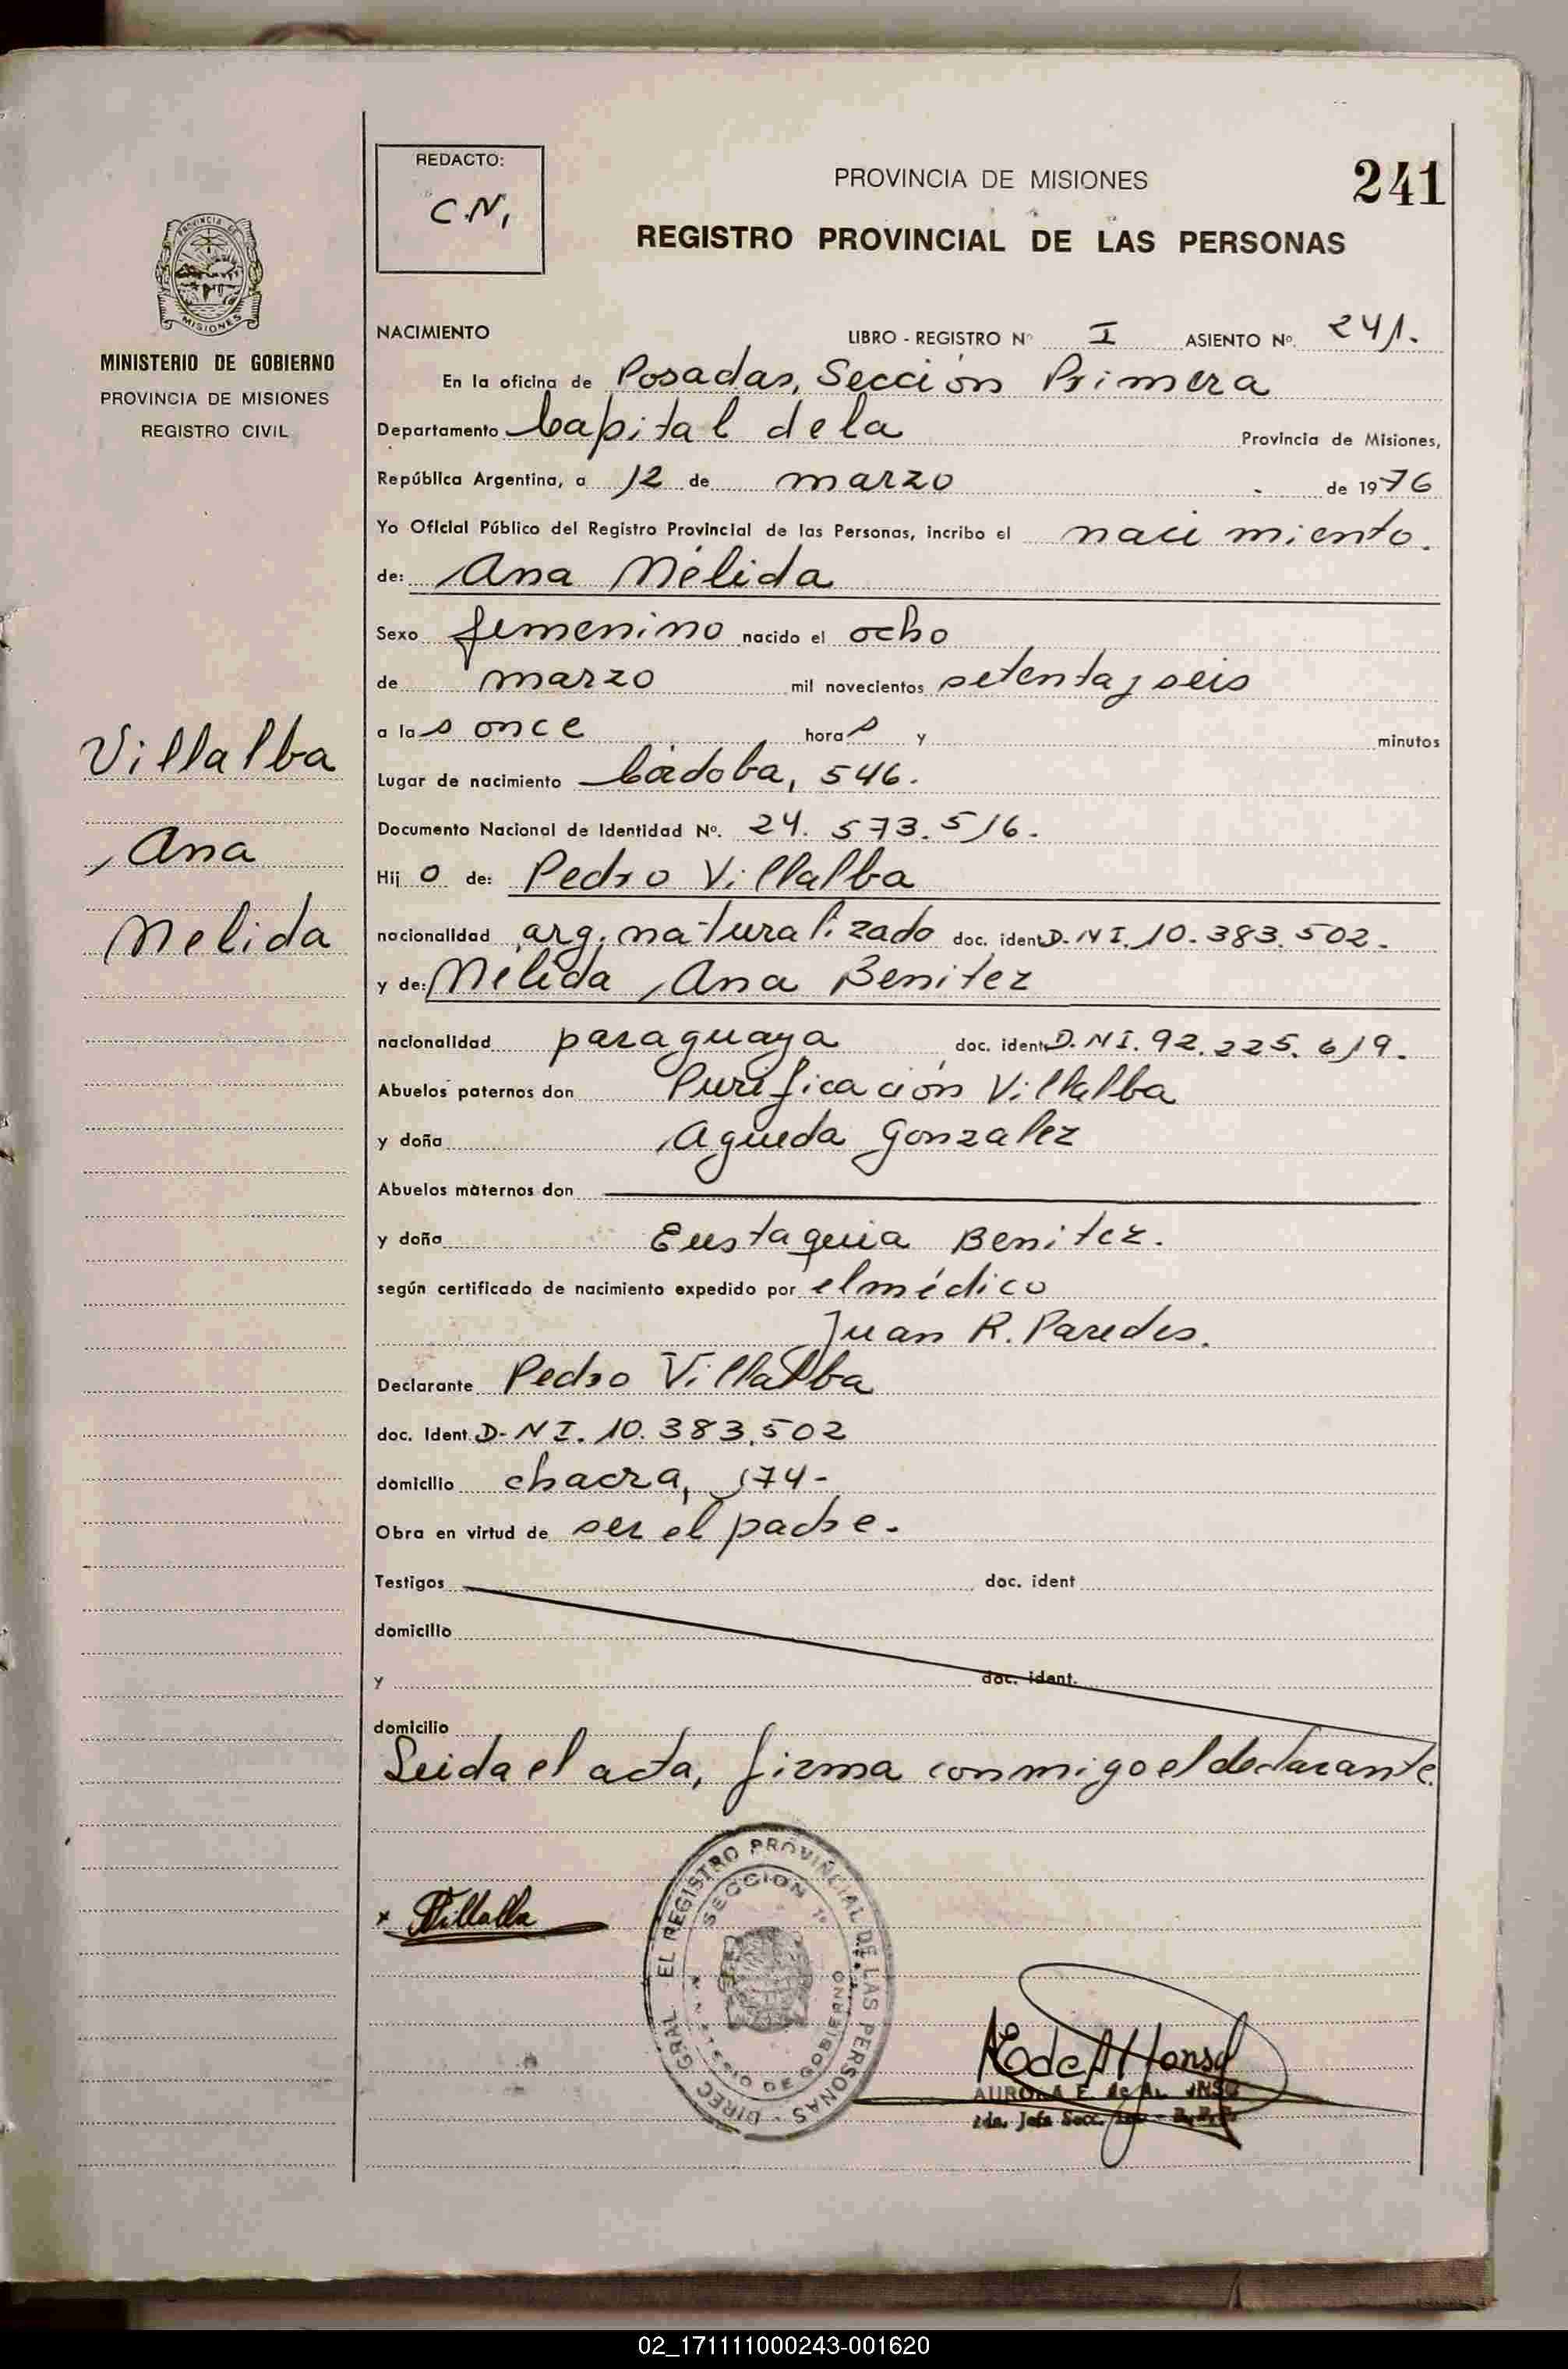 REDACTO:
C.N,
PROVINCIA DE MISIONES
241
REGISTRO PROVINCIAL DE LAS PERSONAS
PROVINCIA DE
MISIONES
MINISTERIO DE GOBIERNO
PROVINCIA DE MISIONES
REGISTRO CIVIL
NACIMIENTO LIBRO - REGISTRO Nº I ASIENTO Nº. 241.
En la oficina de Posadas, Sección Primera
Departamento Capital de la Provincia de Misiones,
República Argentina, a 12 de marzo de 1976
Yo Oficial Público del Registro Provincial de las Personas, incribo el nacimiento.
de: Ana Mélida
Sexo femenino nacido el ocho
de marzo mil novecientos setenta y seis
a las once horas y minutos
Lugar de nacimiento Córdoba, 546.
Documento Nacional de Identidad Nº. 24.573.516.
Hijo de: Pedro Villalba
nacionalidad arg. naturalizado doc. ident D.N I. 10.383.502.
y de: Mélida Ana Benitez
nacionalidad paraguaya doc. ident D.N I. 92.225.619.
Abuelos paternos don Purificación Villalba
y doña Agueda Gonzalez
Abuelos maternos don
y doña Eustaquia Benitez.
según certificado de nacimiento expedido por el médico
Juan R. Paredes.
Declarante Pedro Villalba
doc. Ident. D-N I. 10.383.502
domicilio chacra, 174-
Obra en virtud de ser el padre.
Testigos doc. ident
domicilio
y doc. ident.
domicilio
Leida el acta, firma conmigo el declarante.
Villalba
Ana
Melida
x Villalba
DIREC GRAL EL REGISTRO PROVINCIAL DE LAS PERSONAS
SECCION 1º
MINISTERIO DE GOBIERNO
AURORA E. de ALONSO
2da. Jefa Secc.
02_171111000243-001620